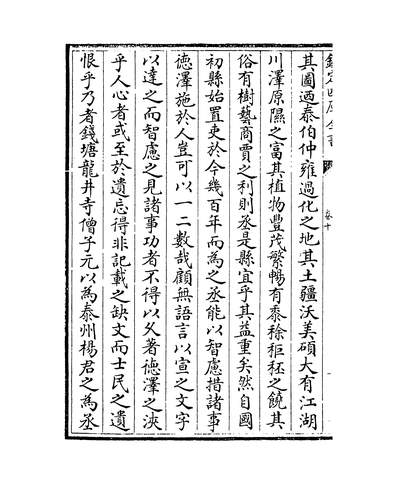 欽定四庫全書
卷十
其圖迺泰伯仲雍過化之地其土疆沃美碩大有江湖
川澤原隰之富其植物豐茂繁暢有黍稌秬秠之饒其
俗有樹藝商賈之利則丞是縣宜乎其益重矣然自國
初縣始置吏於今幾百年而為之丞能以智慮措諸事
德澤施於人豈可以一二數哉顧無語言以宣之文字
以達之而智慮之見諸事功者不得以久著德澤之浹
乎人心者或至於遺忘得非記載之缺文而士民之遺
恨乎乃者錢塘龍井寺僧子元以為泰州楊君之為丞